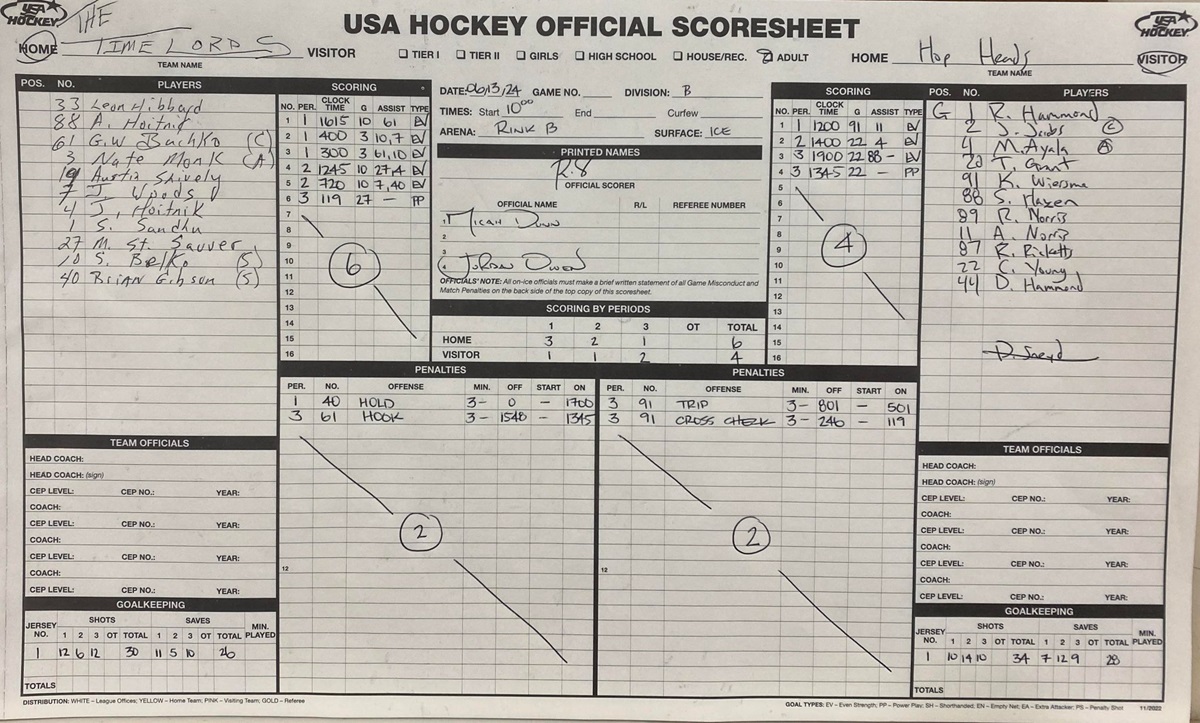 USA HOCKEY
USA HOCKEY OFFICIAL SCORESHEET
USA HOCKEY
THE
HOME TIME LORDS VISITOR
TEAM NAME
TIER I TIER II GIRLS HIGH SCHOOL HOUSE/REC. ADULT
HOME Hop Heads VISITOR
TEAM NAME
POS. NO. PLAYERS
33 Leon Hibbard
88 A. Hoitnik
61 G.W Bachko (C)
3 Nate Monk (A)
19 Austin Shively
7 J. Woods
4 J. Hoitnik
1 S. Sandhu
27 M. St. Sauver
10 S. Belko (S)
40 BRIAN Gibson (S)
SCORING
NO. PER. CLOCK TIME G ASSIST TYPE
1 1 1615 10 61 EV
2 1 400 3 10,7 EV
3 1 300 3 61,10 EV
4 2 1245 10 27,4 EV
5 2 720 10 7,40 EV
6 3 119 27 - PP
7
8
9
10
11
12
13
14
15
16
6
DATE: 06/13/24 GAME NO. DIVISION: B
TIMES: Start 10:00 End Curfew
ARENA: RINK B SURFACE: ICE
PRINTED NAMES
R.8
OFFICIAL SCORER
OFFICIAL NAME R/L REFEREE NUMBER
1 MICAH DUNN
2
3
4 JORDAN OWEN
OFFICIALS' NOTE: All on-ice officials must make a brief written statement of all Game Misconduct and
Match Penalties on the back side of the top copy of this scoresheet.
SCORING BY PERIODS
1 2 3 OT TOTAL
HOME 3 2 1 6
VISITOR 1 1 2 4
SCORING
NO. PER. CLOCK TIME G ASSIST TYPE
1 1 1200 91 11 EV
2 2 1400 22 4 EV
3 3 1900 22 88 - EV
4 3 1345 22 - PP
5
6
7
8
9
10
11
12
13
14
15
16
4
POS. NO. PLAYERS
G 1 R. Hammond
2 J. Jacobs C
4 M. Ayala A
20 T. Grant
91 K. Wiersma
88 S. Haxen
89 R. Norris
11 A. Norris
87 R. Ricketts
22 C. Young
44 D. Hammond
PENALTIES
PER. NO. OFFENSE MIN. OFF START ON
1 40 HOLD 3- 0 - 1700
3 61 HOOK 3- 1548 - 1345
12
2
PENALTIES
PER. NO. OFFENSE MIN. OFF START ON
3 91 TRIP 3- 801 - 501
3 91 CROSS CHECK 3- 246 - 119
12
2
TEAM OFFICIALS
HEAD COACH:
HEAD COACH: (sign)
CEP LEVEL: CEP NO.: YEAR:
COACH:
CEP LEVEL: CEP NO.: YEAR:
COACH:
CEP LEVEL: CEP NO.: YEAR:
COACH:
CEP LEVEL: CEP NO.: YEAR:
GOALKEEPING
JERSEY NO. SHOTS SAVES MIN. PLAYED
1 2 3 OT TOTAL 1 2 3 OT TOTAL
1 12 6 12 30 11 5 10 26
TOTALS
TEAM OFFICIALS
HEAD COACH:
HEAD COACH: (sign)
CEP LEVEL: CEP NO.: YEAR:
COACH:
CEP LEVEL: CEP NO.: YEAR:
COACH:
CEP LEVEL: CEP NO.: YEAR:
COACH:
CEP LEVEL: CEP NO.: YEAR:
GOALKEEPING
JERSEY NO. SHOTS SAVES MIN. PLAYED
1 2 3 OT TOTAL 1 2 3 OT TOTAL
1 10 14 10 34 7 12 9 28
TOTALS
DISTRIBUTION: WHITE – League Offices; YELLOW – Home Team; PINK – Visiting Team; GOLD – Referee
GOAL TYPES: EV – Even Strength; PP – Power Play; SH – Shorthanded; EN – Empty Net; EA – Extra Attacker; PS – Penalty Shot 11/2022